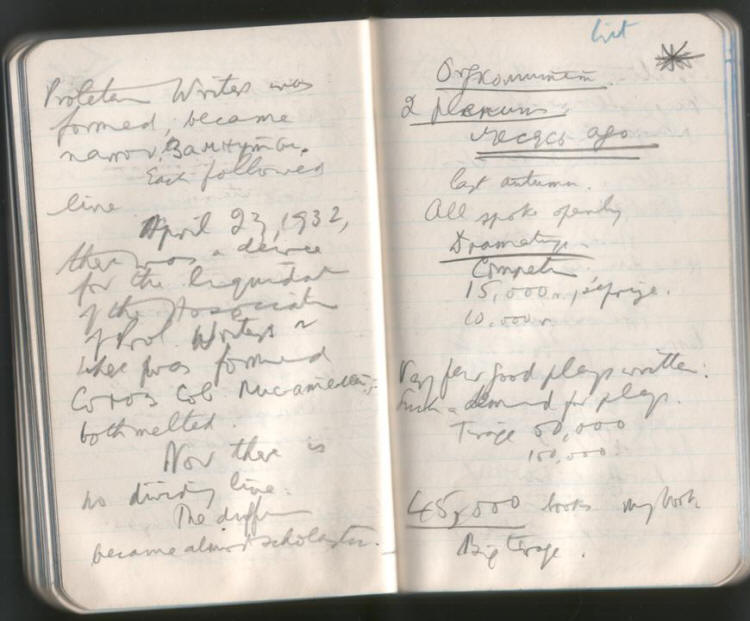 Proletan Writers was
formed, became
narrow, замкутые.
Each followed
line
April 23, 1932,
there was a decree
for the liquidat
of the Associati
of Prol. Writers &
was formed
Союз Сов Писателей
both melted.
Now there is
no dividing line.
The differ
became almost scholastic.
Lit
Оргкомитет.
2 plenums
ago
last autumn.
All spoke openly
Dramaturgs
Competn
15,000 r, 1st prize.
10,000 r
Very few good plays written.
Such a demand for plays.
Tirage 50,000
100,000
45,000 books my book
Big tirage.